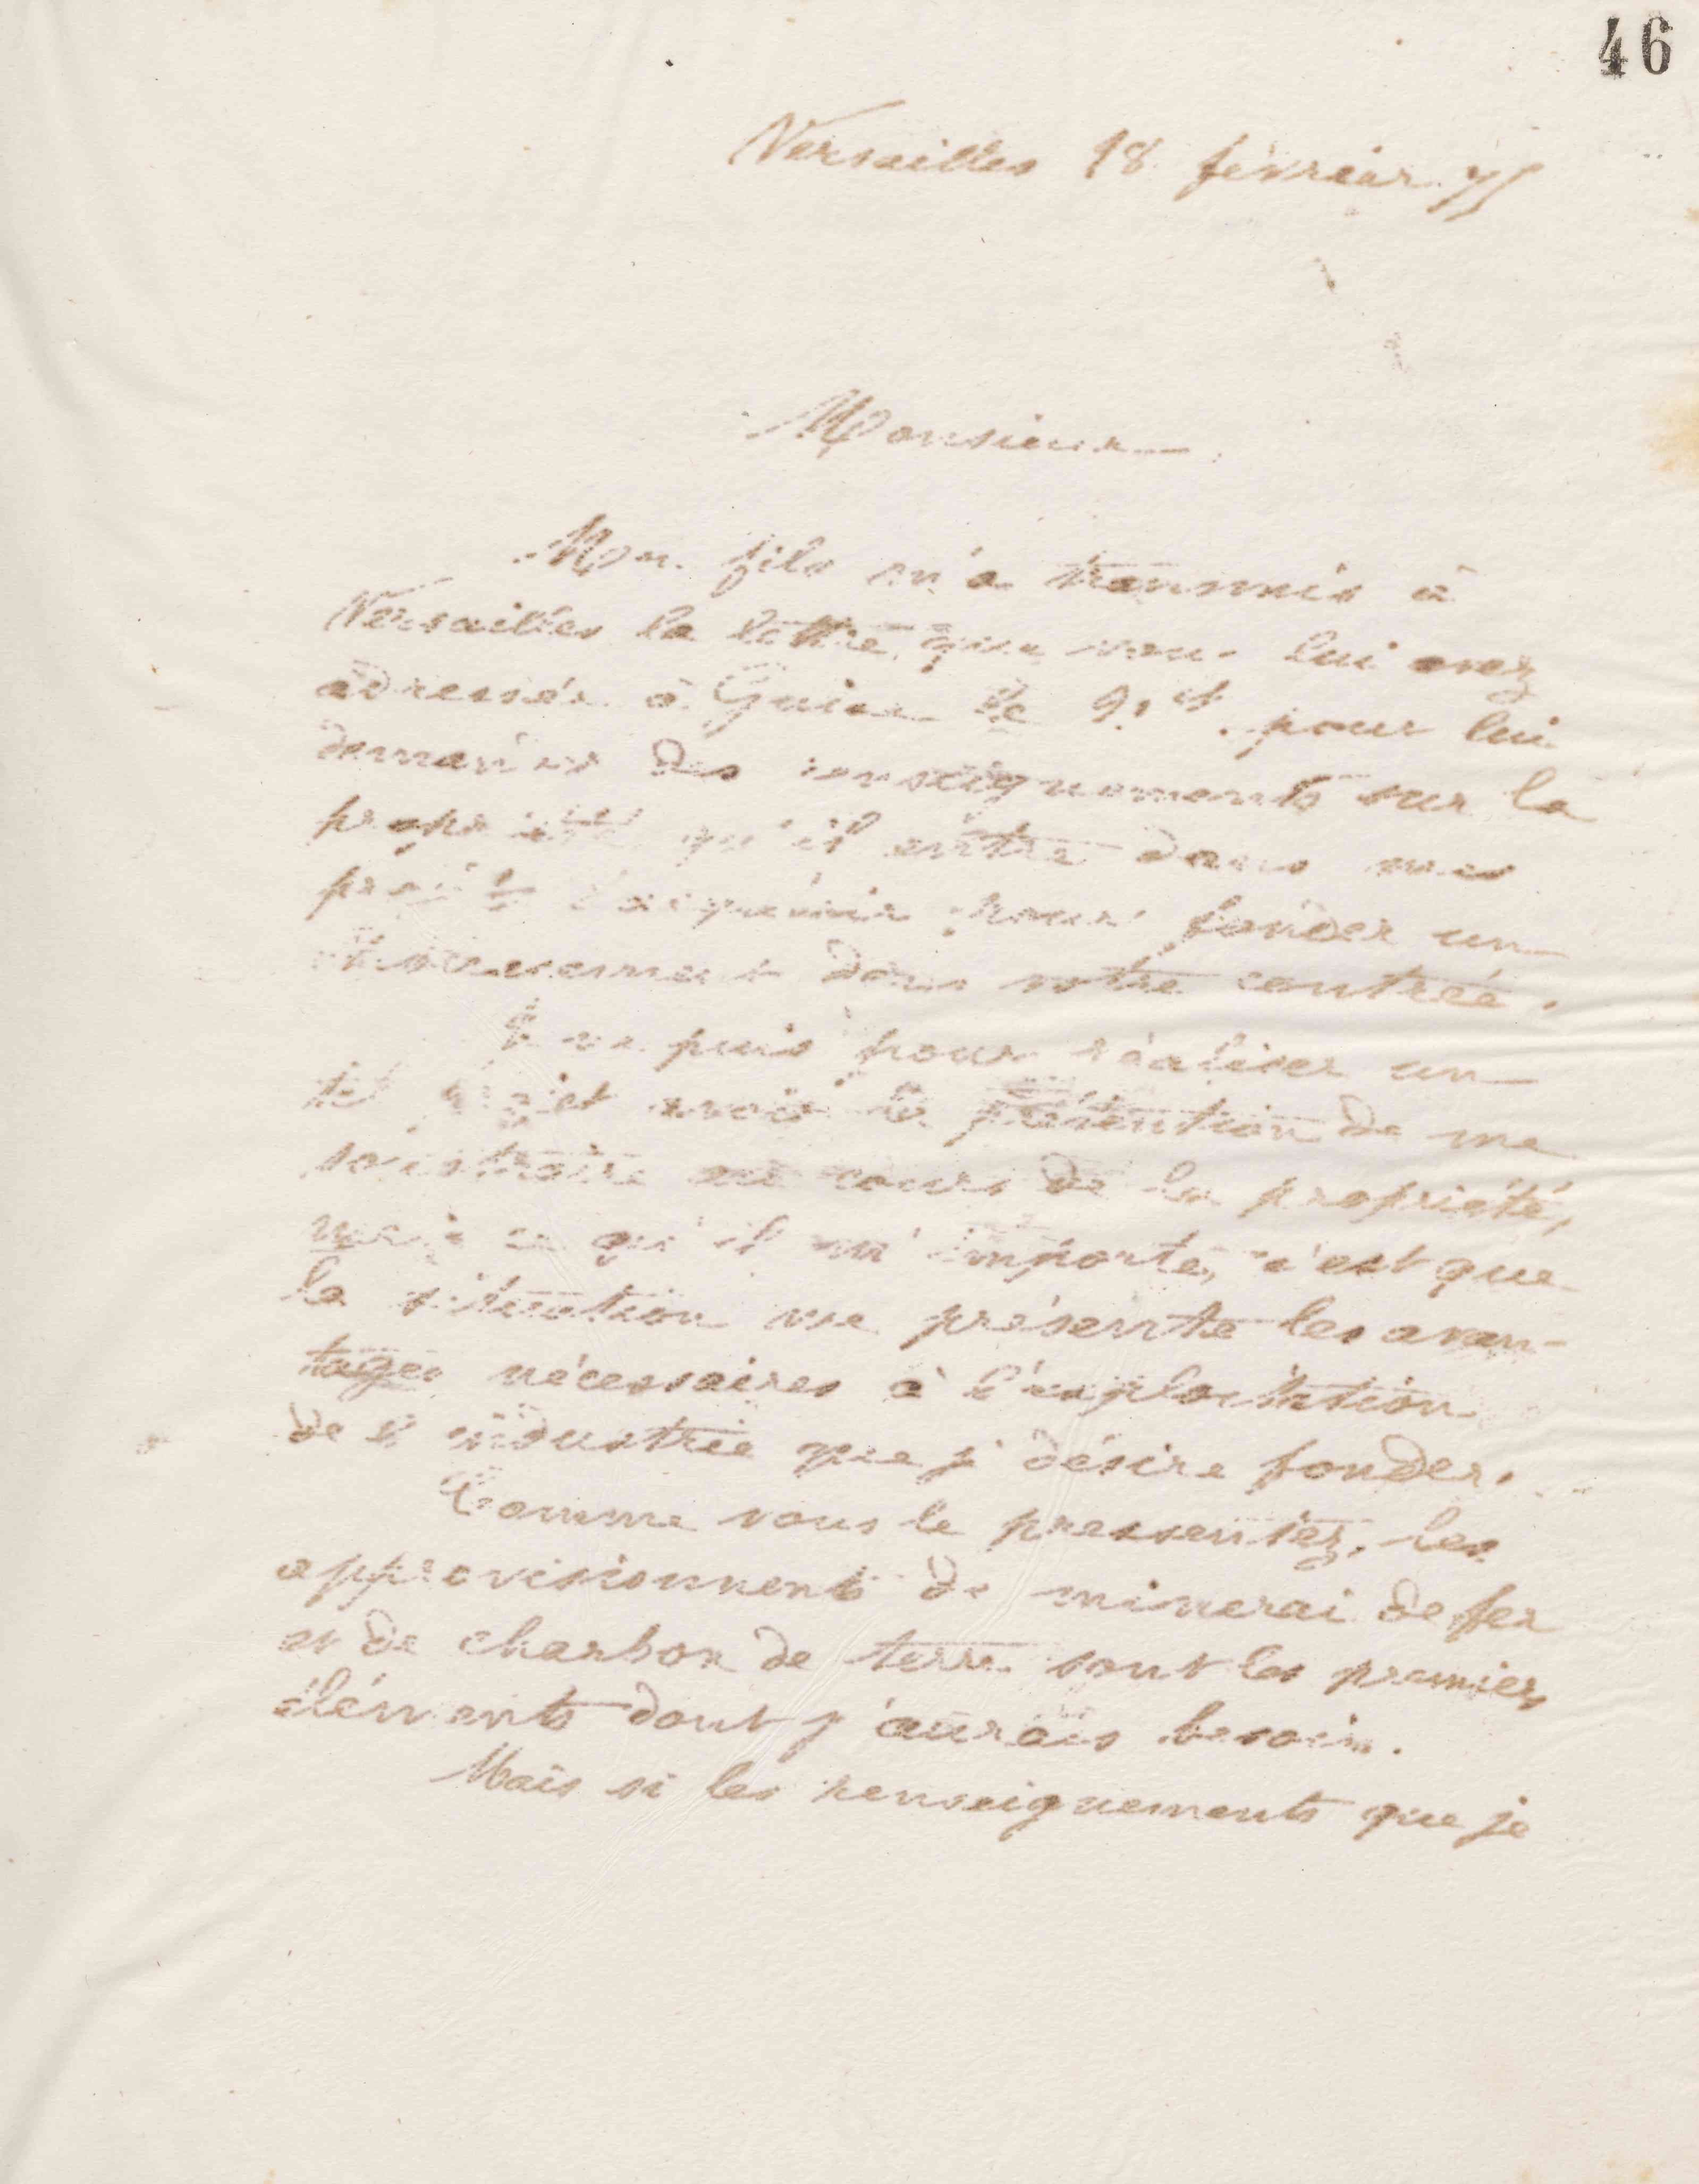 46
Versailles 18 février 75
Monsieur
Mon fils m'a transmis à
Versailles la lettre que vous lui avez
adressée à Guise le pour lui
demander des renseignements sur la
propriété qu'il entre dans mes
projets d'acquérir pour fonder un
établissement dans votre contrée.
Je ne puis pour réaliser un
tel projet avoir la prétention de me
soustraire au cours de la propriété,
mais ce qu'il m'importe, c'est que
la situation me présente les avan-
tages nécessaires à l'exploitation
de l'industrie que je désire fonder.
Comme vous le pressentez, les
approvisionnements de minerai de fer
et de charbon de terre sont les premiers
éléments dont j'aurais besoin.
Mais si les renseignements que je